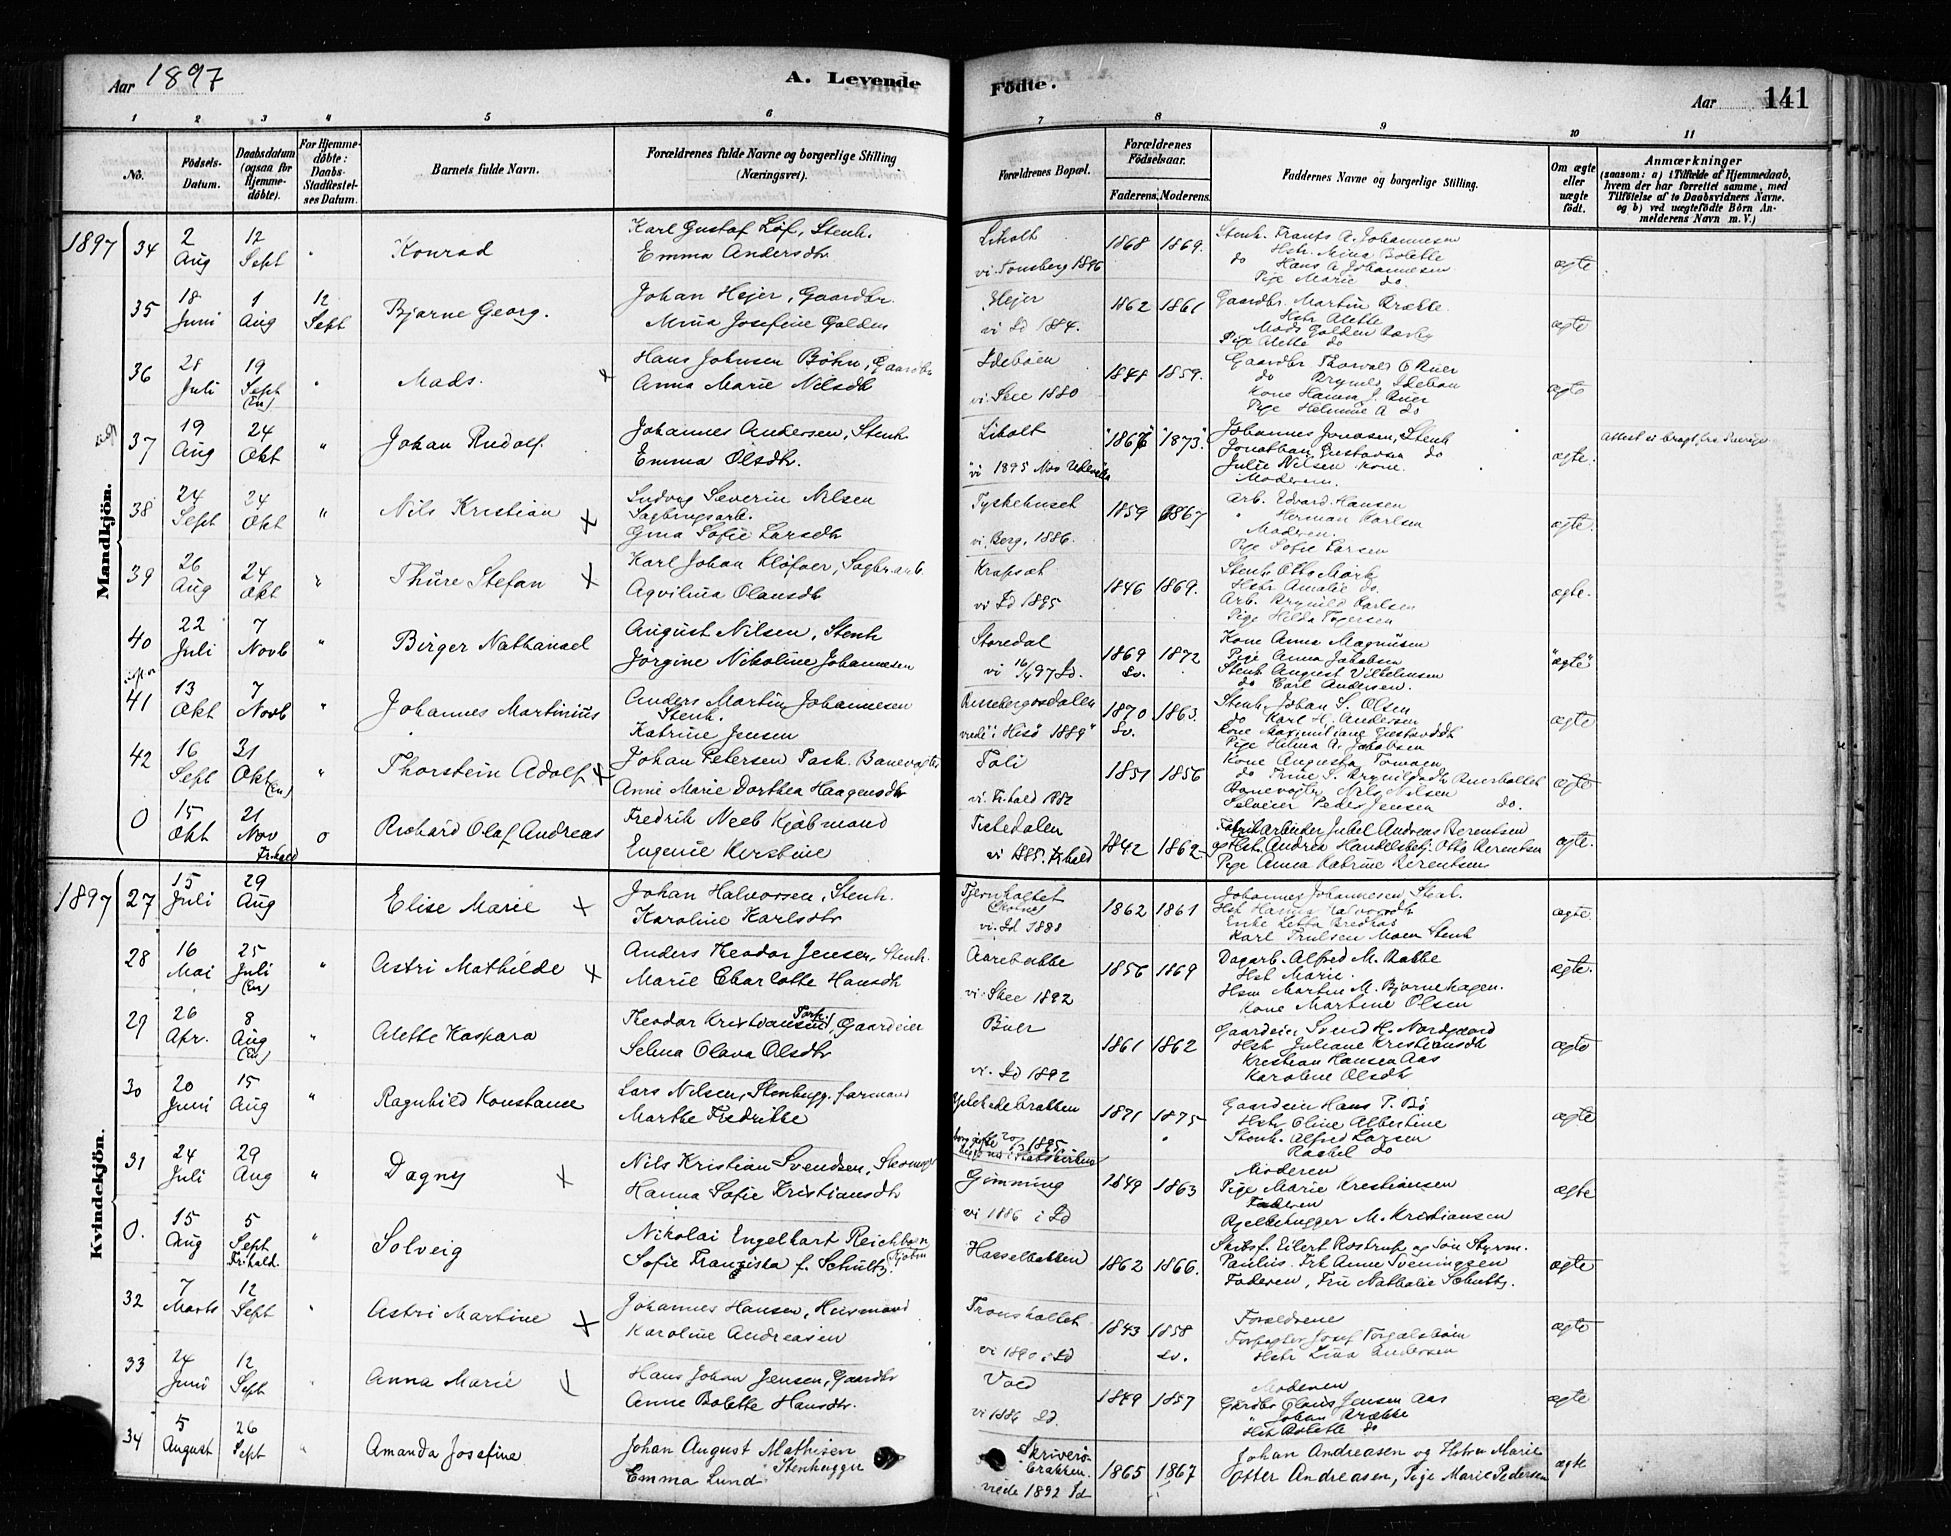 Aar 1897
A. Levende
Födte.
Aar 141
1 2 3 4 5 6 7 8 9 10 11
No.
Födsels-
Datum.
Daabsdatum
(ogsaa for
Hjemme-
döbte).
For Hjemme-
döbte:
Daabs-
Stadfæstel-
ses Datum.
Barnets fulde Navn.
Forældrenes fulde Navne og borgerlige Stilling
(Næringsvei).
Forældrenes Bopæl.
Forældrenes
Födselsaar.
Faderens. Moderens.
Faddernes Navne og borgerlige Stilling.
Om ægte
eller
uægte
födt.
Anmærkninger
(saasom: a) i Tilfælde af Hjemmedaab,
hvem der har forrettet samme, med
Tilföielse af to Daabsvidners Navne.
og b) ved uægtefödte Börn An-
melderens Navn m. V.)
Mandkjön.
1897 34 2 Aug 12 Sept " Konrad
Karl Gustaf Löf, Stenh.
Emma Andersdtr
Liholt
vi. Tonsberg 1896
1868 1869.
Stenh. Frants A. Johannesen
Hstr. Mina Bolette
do Hans A Johannesen
Pige Marie do.
ægte
35 18 Juni 1 Aug 12 Sept Bjarne Georg.
Johan Hejer, Gaardbr.
Mina Josefine Golden
Hejer
vi Id 1884.
1862 1861
Gaardbr. Martin Brække
Hstr Alette
Mads Golden
Pige Alette do
ægte
36 28 Juli 19 Sept (En) " Mads. x
Hans Johnsen Böhn, Gaardbr
Anna Marie Nilsdtr
Ideböen
vi. Skee 1880
1848 1859.
Gaardbr Thorvald O Buer
do Brynild Ideböen
Kone Hanna J. Buer
Pige Helmine A do
ægte
37 19 Aug 24 Okt " Johan Rudolf.
Johannes Andersen, Stenh
Emma Olsdtr.
Liholt
vi 1895 Nov Udevalla
"1867" "1873."
Johannes Jonasen, Stenh
Jonathan Gustavsen do
Julie Nilsen kone.
Moderen.
ægte.
Attest ei bragt fra Sverige
38 24 Sept 24 Okt " Nils Kristian x
Ludvig Severin Nilsen
Sagbrugsarb.
Gina Sofie Larsdtr
Tyskehuset
vi. Berg, 1886.
1859 1867
Arb. Edvard Hansen
" Herman Karlsen
Moderen.
Pige Sofie Larsen
ægte.
39 26 Aug 24 Okt " Thure Stefan x
Karl Johan Klöfver, Sagbr.arb.
Aqvilina Olausdtr
Krapsöt
vi Id 1895
1846 1869.
Stenh. Otto Mörk
Hstr Amalie do.
Arb. Brynild Karlsen
Pige Hilda Tygesen
ægte.
40 22 Juli 7 Novb " Birger Nathanael
August Nilsen, Stenh
Jörgine Nikoline Johannesen
Storedal
vi 16/4 97 Id.
1869 Sv. 1872
Kone Anna Magnusen
Pige Anna Jakobsen
Stenh August Vilhelmsen
do Carl Andersen.
"ægte"
41 13 Okt 7 Novb " Johannes Martinius
Anders Martin Johannesen
Stenh.
Katrine Jensen
viede "i Hisö 1889"
1870 Sv. 1863.
Stenh. Johan S. Olsen
do Karl H. Andersen
Kone Maximiliane Gustavsdtr
Pige Hilma A. Jakobsen
ægte
42 16 Sept 31 Okt (En) " Thorstein Adolf x
Johan Petersen Pash. Banevogter
Anne Marie Dorthea Haagensdtr
Foli
vi. Fr.hald 1882
1851 1856
Kone Augusta
do Trine S. Brynildsdtr
Banevogter Nils Nilsen
Seleier Peder Jensen do.
ægte
0 15 Okt 21 Nov Fr.hald 0 Richard Olaf Andreas
Fredrik Neeb Kjöbmand
Eugenie Kirstine
Tistedalen
vi 1885. Fr.hald
1842 1862
Fabrikarbeider Juhel Andreas Berentsen
og Hstr. Andrea Handelsbetj. Otto Berentsen
Pige Anna Katrine Berentsen
ægte.
Kvindekjön.
1897 27 15 Juli 29 Aug Elise Marie x
Johan Halvorsen, Stenh.
Karoline Karlsdtr
Tjernholtet
vi. Id 1888
1862 1861
Johannes Johannesen Stenh.
Hstr Hanna Halvorsdtr
Karl Trulsen Moen Stenh
ægte.
28 16 Mai 25 Juli (En) " Astri Mathilde x
Anders Theodor Jensen, Stenh.
Marie Charlotte Hansdtr
Aarebakke
vi. Skee 1892
1856 1869
Dagarb. Alfred M. Bakke
Hstr Marie.
Hsm Martin M. Bjornehagen.
Kone Martine Olsen
ægte.
29 26 Apr. 8 Aug (En) " Alette Kaspara
Theodor Kristiansen, Gaardeier
Selma Olava Olsdtr
Buer
vi. Id 1892
1861 1862
Gaardeier Svend H. Nordgaard
Hstr Juliane Kristiansdtr
Kristian Hansen Aas
Karoline Olsdtr
ægte
30 20 Juni 15 Aug " Ragnhild Konstance
Lars Nilsen, Stenhugg. formand
Marthe Fredrikke
borg. gifte 20/3 1895
1871 1875
Gaardeier Hans P. Bö
Hstr Oline Albertine
Stenh. Alfred Larsen
Rachel do
ægte
31 24 Juli 29 Aug " Dagny x
Nils Kristian Svendsen, Stenhug
Hanna Sofie Kristiansdtr
Gimming
vi 1886 i Id
1849 1863
Moderen
Pige Marie Kristiansen
Faderen
M. Kristiansen
ægte
0. 15 Aug 5 Sept Fr.hald. " Solveig
Nikolai Engelhart Reichborn Kjöbm
Sofie Franziska f. Schultz.
Hasselbakken
1862 1866.
Skibsf. Eilert Rostrup og Sön Styrm.
Paulus. Frk Anne Sveningsen
Faderen, Fru Nathalie Schultz.
ægte
32 7 Marts 12 Sept " Astri Martine x
Johannes Hansen, Husmand
Karoline Andreasen
Tronsholtet
vi 1890 i Id
1843 1858 Sv.
Forældrene
Forpagter Josef Torgalsböen
Hstr Lina Andersen
ægte
33 24 Juni 12 Sept " Anna Marie x
Hans Johan Jensen, Gaardbr
Anne Bolette Hansdtr.
Vold
vi 1886 Id.
1849 1857
Moderen
Gardbr Claus Jensen Aas
" Johan Brække
Hstr Bolette do
ægte
34 5 August 26 Sept " Amanda Josefine
Johan August Mathisen
Stenhugger
Emma Lund
Skriverö-
brakken.
viede 1892 Id
1865 1867
Johan Andreasen og Hstru Marie
Otter Andreasen, Pige Marie Pedersen
ægte